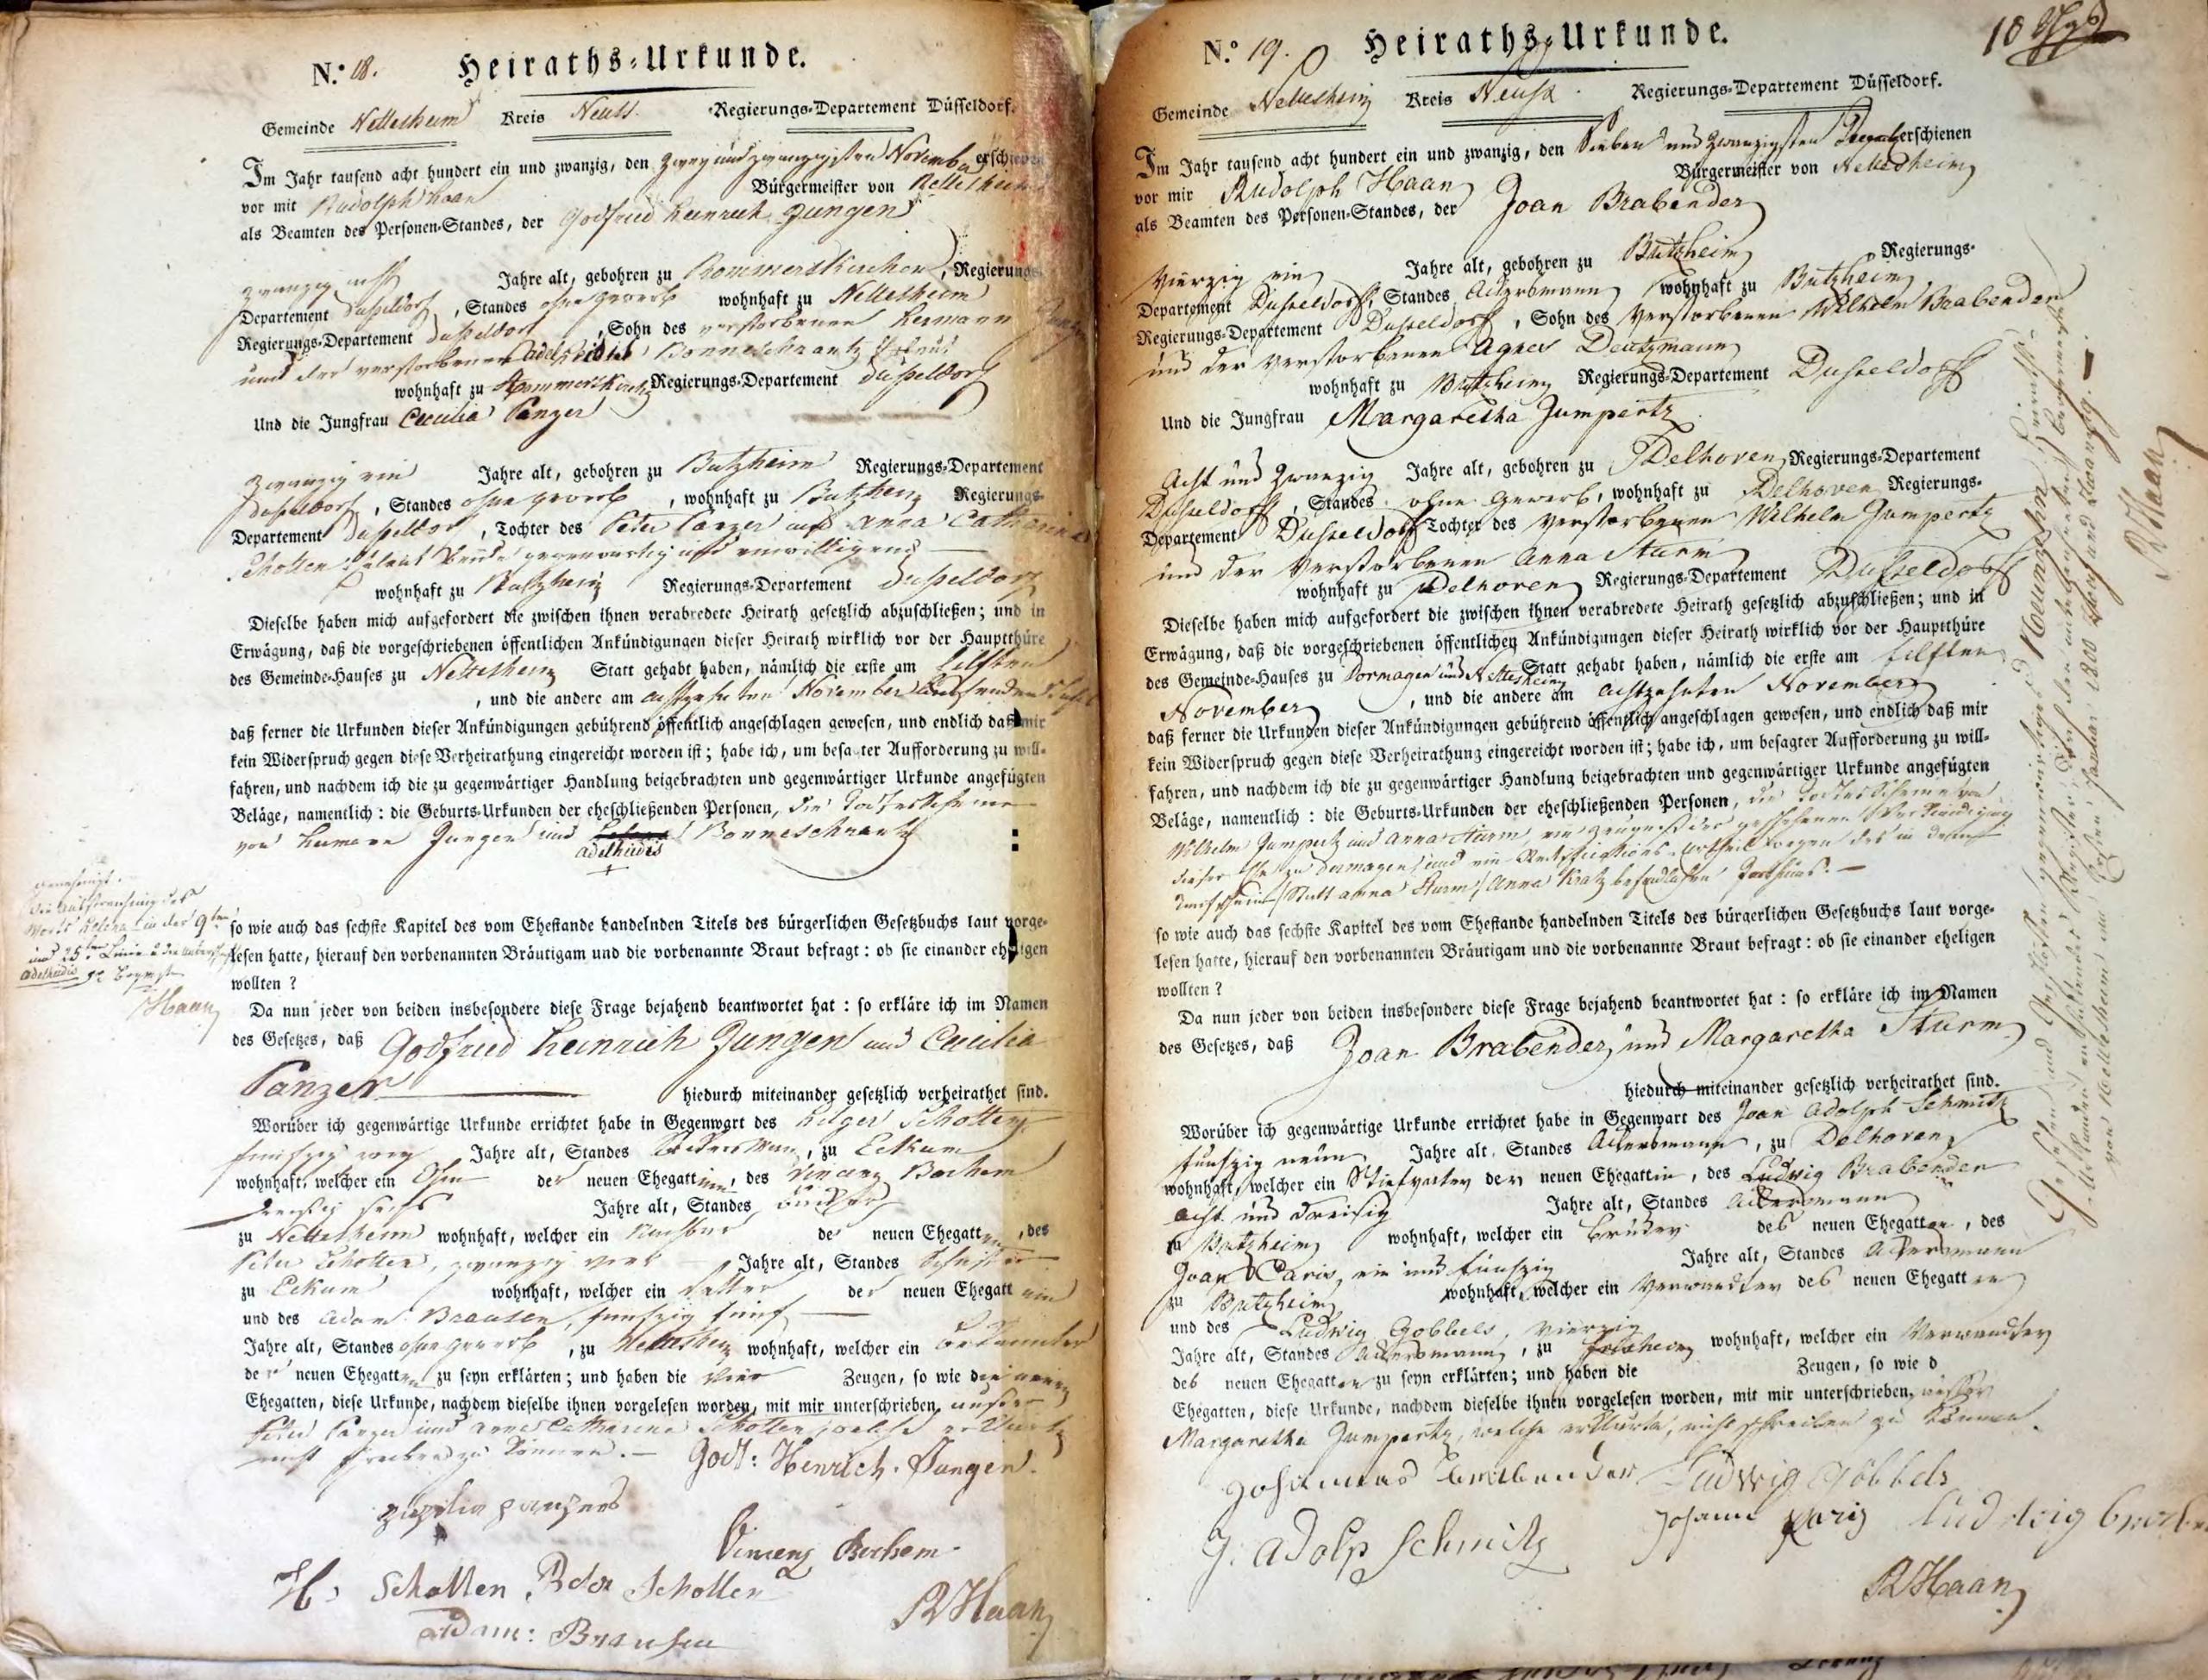 N.º 18. Heiraths-Urkunde.
Gemeinde Nettesheim Kreis Neuss. Regierungs-Departement Düsseldorf.
Im Jahr tausend acht hundert ein und zwanzig, den zwey und zwanzigsten November erschienen
vor mir Rudolph Haan Bürgermeister von Nettesheim
als Beamten des Personen-Standes, der Godfried Heinrich Jungen
zwanzig acht Jahre alt, gebohren zu Rommerskirchen, Regierungs-
Departement Dusseldorf, Standes ohne Gewerb wohnhaft zu Nettesheim
Regierungs-Departement Dusseldorf, Sohn des verstorbenen Hermann Jungen
und der verstorbenen Adelheidis Bonneschrantz
wohnhaft zu Rommerskirchen Regierungs-Departement Dusseldorf
Und die Jungfrau Cecilia Panzer
zwanzig ein Jahre alt, gebohren zu Butzheim Regierungs-Departement
Dusseldorf, Standes ohne Gewerb, wohnhaft zu Butzheim Regierungs-
Departement Dusseldorf, Tochter des Peter Panzer und Anna Catharina
Scholten beide gegenwärtig und einwilligend
wohnhaft zu Butzheim Regierungs-Departement Dusseldorf
Dieselbe haben mich aufgefordert die zwischen ihnen verabredete Heirath gesetzlich abzuschließen; und in
Erwägung, daß die vorgeschriebenen öffentlichen Ankündigungen dieser Heirath wirklich vor der Hauptthüre
des Gemeinde-Hauses zu Nettesheim Statt gehabt haben, nämlich die erste am Eilften
, und die andere am achtzehnten November
daß ferner die Urkunden dieser Ankündigungen gebührend öffentlich angeschlagen gewesen, und endlich daß mir
kein Widerspruch gegen diese Verheirathung eingereicht worden ist; habe ich, um besagter Aufforderung zu will-
fahren, und nachdem ich die zu gegenwärtiger Handlung beigebrachten und gegenwärtiger Urkunde angefügten
Beläge, namentlich: die Geburts-Urkunden der eheschließenden Personen, die Todesscheine
von Hermann Jungen und Bonneschrantz
Adelheidis
so wie auch das sechste Kapitel des vom Ehestande handelnden Titels des bürgerlichen Gesetzbuchs laut vorge-
lesen hatte, hierauf den vorbenannten Bräutigam und die vorbenannte Braut befragt: ob sie einander ehligen
wollten?
Adelheidis
Haan
Da nun jeder von beiden insbesondere diese Frage bejahend beantwortet hat: so erkläre ich im Namen
des Gesetzes, daß Godfried Heinrich Jungen und Cecilia
Panzer hiedurch miteinander gesetzlich verheirathet sind.
Worüber ich gegenwärtige Urkunde errichtet habe in Gegenwart des Hilger Scholten
funfzig zwey Jahre alt, Standes Ackersmann, zu Eckum
wohnhaft, welcher ein Ohm der neuen Ehegattinn, des Vincenz Bochem
dreißig sechs Jahre alt, Standes
zu Nettesheim wohnhaft, welcher ein Nachbar der neuen Ehegatten, des
Peter Scholten, zwanzig Jahre alt, Standes
zu Eckum wohnhaft, welcher ein Vetter der neuen Ehegattinn
und des Adam Brausen, funfzig fünf
Jahre alt, Standes ohne Gewerb, zu Nettesheim wohnhaft, welcher ein Bekannter
der neuen Ehegatten zu seyn erklärten; und haben die vier Zeugen, so wie die neuen
Ehegatten, diese Urkunde, nachdem dieselbe ihnen vorgelesen worden, mit mir unterschrieben, außer
Peter Panzer und Anna Catharina Scholten welche erklärten
nicht schreiben zu können. —
Godf: Henrich. Jungen.
Vincenz Bochem
H. Scholten Peter Scholten
Adam: Brausen
R Haan
N.º 19. Heiraths-Urkunde.
Gemeinde Nettesheim Kreis Neuss. Regierungs-Departement Düsseldorf.
Im Jahr tausend acht hundert ein und zwanzig, den Sieben und zwanzigsten erschienen
vor mir Rudolph Haan Bürgermeister von Nettesheim
als Beamten des Personen-Standes, der Joan Brabender
Vierzig ein Jahre alt, gebohren zu Butzheim Regierungs-
Departement Dusseldorf, Standes Ackersmann wohnhaft zu Butzheim
Regierungs-Departement Dusseldorf, Sohn des verstorbenen Wilhelm Brabender
und der verstorbenen Agnes Deutzmann
wohnhaft zu Butzheim Regierungs-Departement Dusseldorf
Und die Jungfrau Margaretha Gumpertz
Acht und zwanzig Jahre alt, gebohren zu Delhoven Regierungs-Departement
Dusseldorf, Standes ohne Gewerb, wohnhaft zu Delhoven Regierungs-
Departement Dusseldorf Tochter des verstorbenen Wilhelm Gumpertz
und der verstorbenen Anna Sturm
wohnhaft zu Delhoven Regierungs-Departement Dusseldorf
Dieselbe haben mich aufgefordert die zwischen ihnen verabredete Heirath gesetzlich abzuschließen; und in
Erwägung, daß die vorgeschriebenen öffentlichen Ankündigungen dieser Heirath wirklich vor der Hauptthüre
des Gemeinde-Hauses zu Dormagen und Nettesheim Statt gehabt haben, nämlich die erste am Eilften
November, und die andere am achtzehnten November
daß ferner die Urkunden dieser Ankündigungen gebührend öffentlich angeschlagen gewesen, und endlich daß mir
kein Widerspruch gegen diese Verheirathung eingereicht worden ist; habe ich, um besagter Aufforderung zu will-
fahren, und nachdem ich die zu gegenwärtiger Handlung beigebrachten und gegenwärtiger Urkunde angefügten
Beläge, namentlich: die Geburts-Urkunden der eheschließenden Personen, die Todesscheine von
Wilhelm Gumpertz und Anna Sturm, ein Zeugniß der geschehenen Verkündigung
dieser Ehe zu Dormagen und ein
Statt Anna Sturm, Anna Kratz
so wie auch das sechste Kapitel des vom Ehestande handelnden Titels des bürgerlichen Gesetzbuchs laut vorge-
lesen hatte, hierauf den vorbenannten Bräutigam und die vorbenannte Braut befragt: ob sie einander eheligen
wollten?
Da nun jeder von beiden insbesondere diese Frage bejahend beantwortet hat: so erkläre ich im Namen
des Gesetzes, daß Joan Brabender und Margaretha Sturm
hiedurch miteinander gesetzlich verheirathet sind.
Worüber ich gegenwärtige Urkunde errichtet habe in Gegenwart des Joan Adolph Schmitz
funfzig neun Jahre alt, Standes Ackersmann, zu Delhoven
wohnhaft, welcher ein Stiefvater der neuen Ehegattin, des Ludwig Brabender
acht und dreisig Jahre alt, Standes Ackersmann
zu Butzheim wohnhaft, welcher ein Bruder des neuen Ehegatten, des
Joan Paris, ein und funfzig Jahre alt, Standes Ackersmann
zu Butzheim wohnhaft, welcher ein Verwandter des neuen Ehegatten
und des Ludwig Gobbels, vierzig
Jahre alt, Standes Ackersmann, zu Frixheim wohnhaft, welcher ein Verwandter
des neuen Ehegatten zu seyn erklärten; und haben die Zeugen, so wie d
Ehegatten, diese Urkunde, nachdem dieselbe ihnen vorgelesen worden, mit mir unterschrieben, außer
Margaretha Gumpertz, welche erklärte, nicht schreiben zu können.
Johannes Brabender Ludwig Göbbels
J. Adolp Schmitz Johann Paris Ludwig
R Haan
R Haan